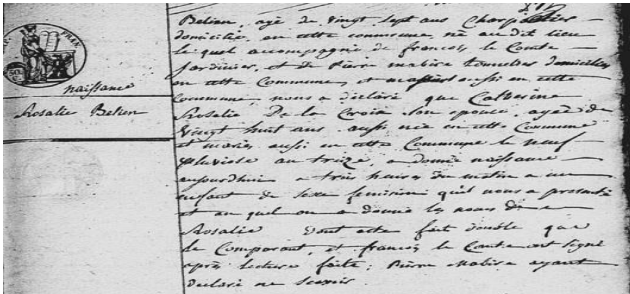 naissance
Rosalie Belien
Belien, agé de vingt sept ans Charpentier
domicilié en cette commune, né au dit lieu
lequel accompagné de francois le Conte
Jardinier, et de Pierre malise tonnelier domiciliés
en cette Commune, et aussi en cette
Commune, nous a déclaré que Catherine
Rosalie De la Croix Son epouse, agée de
Vingt huit ans aussi née en cette Commune
et mariés aussi en cette Commune le neuf
pluviose an treize, a donné naissance
aujourdhui a trois heures du matin a un
enfant de sexe feminin qu'il nous a presenté
et au quel on a donné les noms de
Rosalie Dont acte fait double que
le Comparant, et francois le Conte ont signé
après lecture faite; Pierre Malise ayant
declaré ne scavoir.